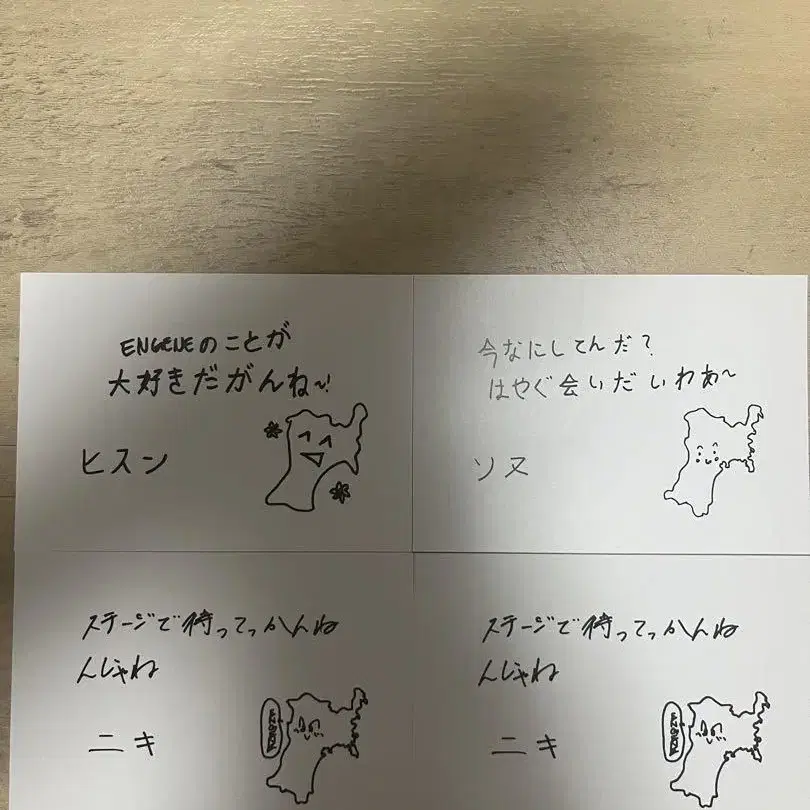 ENGENEのことが
大好きだがんね～!
ヒスン
今なにしてんだ？
はやぐ会いだいわぁ～
ソヌ
ステージで待ってっかんね
んじゃね
ニキ
ステージで待ってっかんね
んじゃね
ニキ